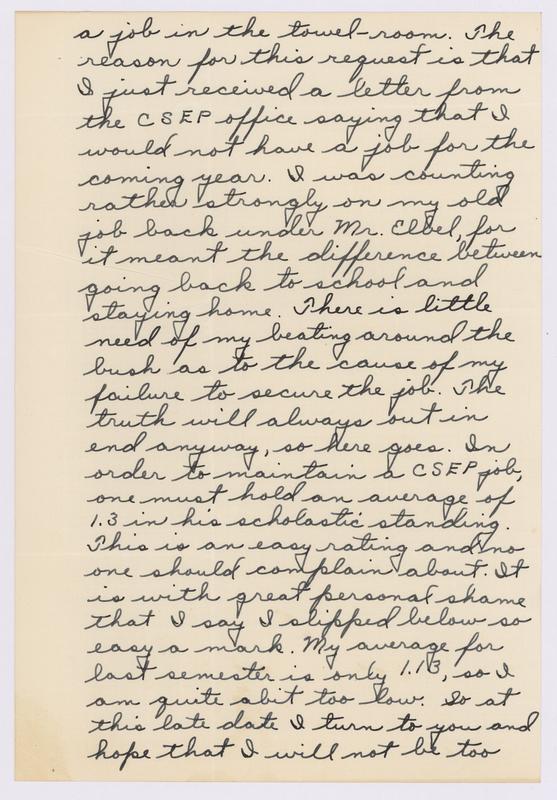 a job in the towel-room. The
reason for this request is that
I just received a letter from
the CSEP office saying that I
would not have a job for the
coming year. I was counting
rather strongly on my old
job back under Mr. Elbel, for
it meant the difference between
going back to school and
staying home. There is little
need of my beating around the
bush as to the cause of my
failure to secure the job. The
truth will always out in
end anyway, so here goes. In
order to maintain a CSEP job,
one must hold an average of
1.3 in his scholastic standing.
This is an easy rating and no
one should complain about. It
is with great personal shame
that I say I slipped below so
easy a mark. My average for
last semester is only 1.13, so I
am quite abit too low. So at
this late date I turn to you and
hope that I will not be too